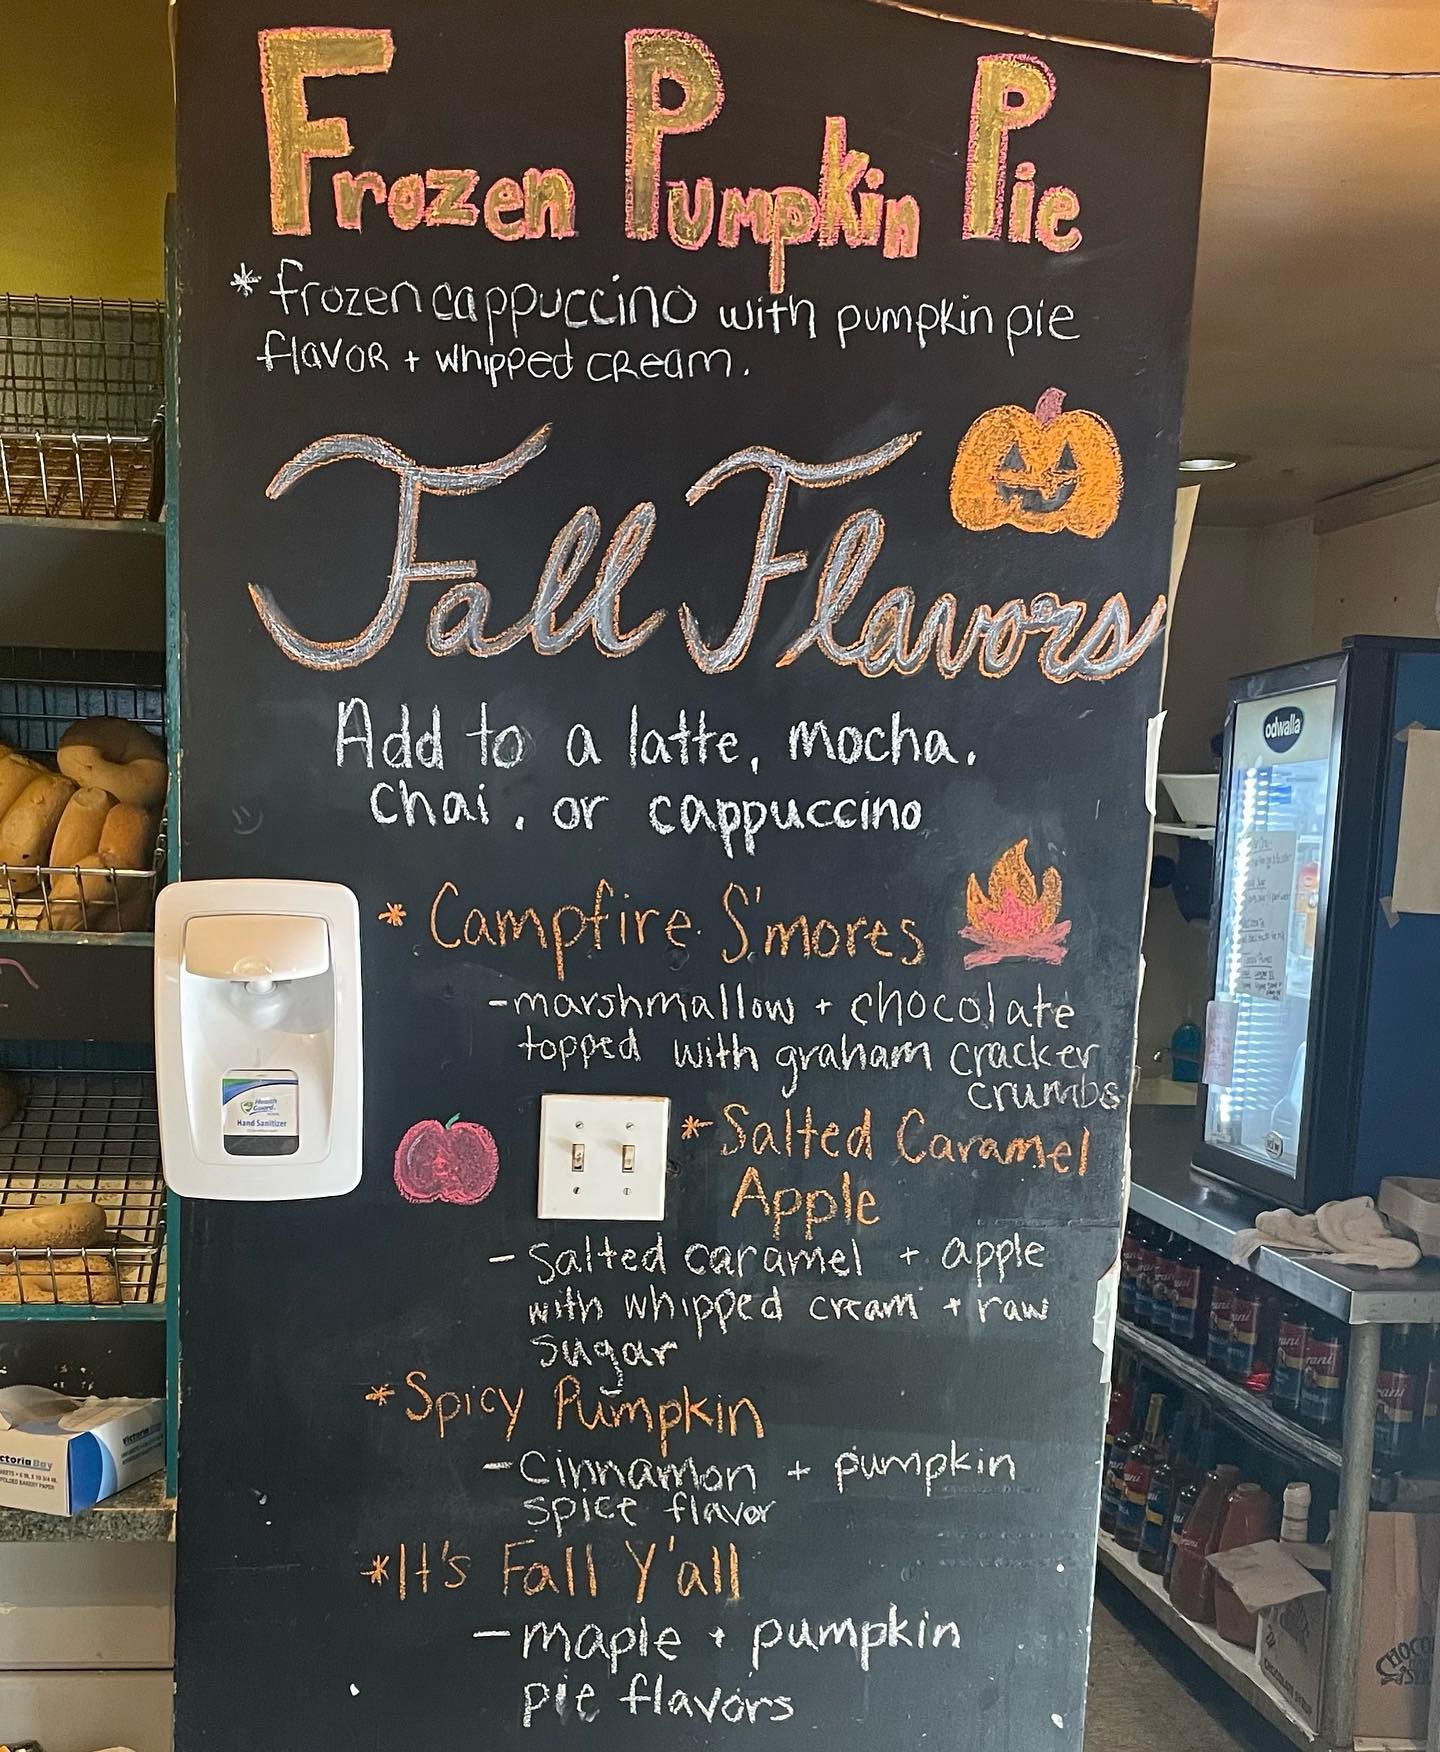 Frozen Pumpkin Pie
* frozen cappuccino with pumpkin pie
flavor + whipped cream.
Fall Flavors
Add to a latte, mocha,
chai, or cappuccino
* Campfire S'mores
- marshmallow + chocolate
topped with graham cracker
crumbs
* Salted Caramel
Apple
- salted caramel + apple
with whipped cream + raw
sugar
* Spicy Pumpkin
- cinnamon + pumpkin
spice flavor
* It's Fall Y'all
- maple + pumpkin
pie flavors
Health
Guard
Hand Sanitizer
odwalla
Victoria Bay